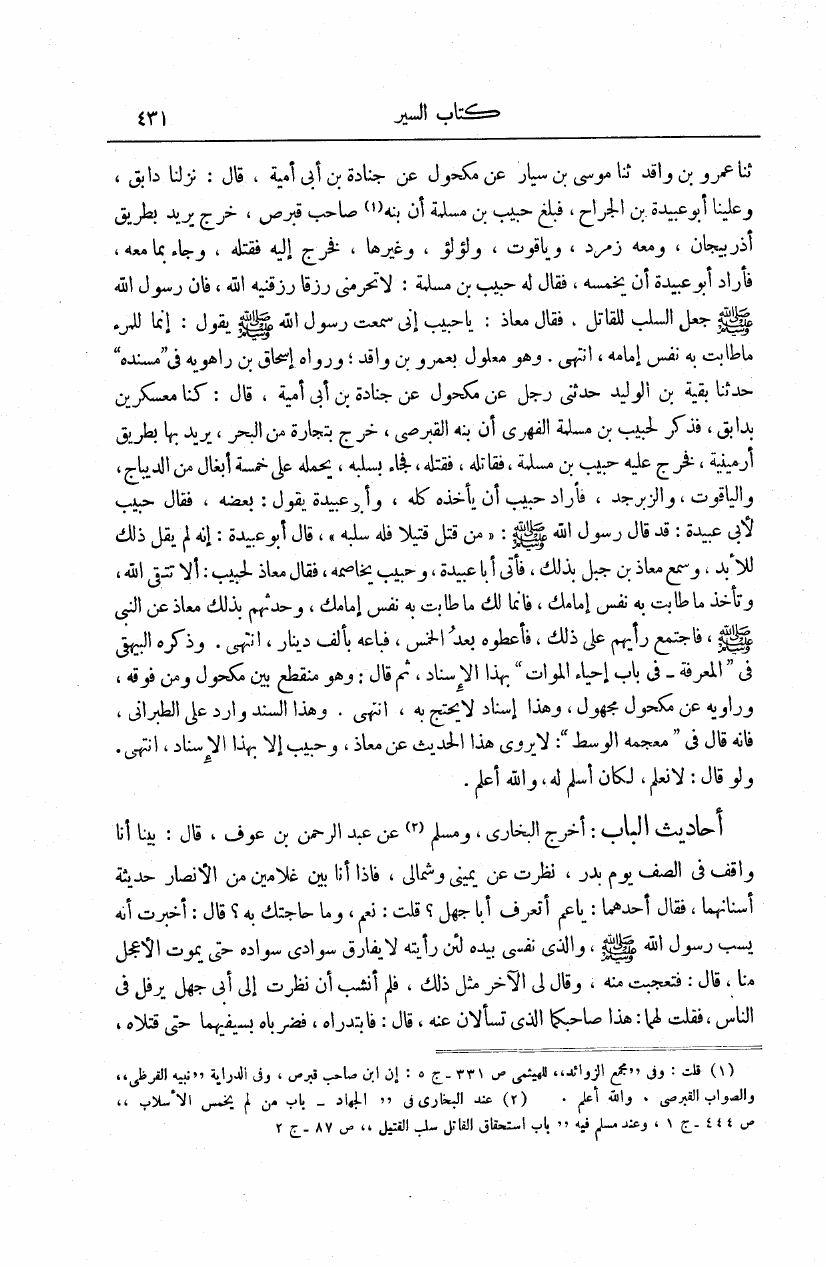 كتاب السير ٤٣١
ثنا عمرو بن واقد ثنا موسى بن سيار عن مكحول عن جنادة بن أبى أمية ، قال : نزلنا دابق ،
وعلينا أبو عبيدة بن الجراح ، فبلغ حبيب بن مسلمة أن بنه (١) صاحب قبرص ، خرج يريد بطريق
أذربيجان ، ومعه زمرد ، وياقوت ، ولؤلؤ ، وغيرها ، فخرج إليه فقتله ، وجاء بما معه ،
فأراد أبو عبيدة أن يخمسه ، فقال له حبيب بن مسلمة : لاتحرمنى رزقا رزقنيه الله ، فان رسول الله
ﷺ جعل السلب للقاتل . فقال معاذ : ياحبيب إنى سمعت رسول الله ﷺ يقول : إنما للمرء
ماطابت به نفس إمامه ، انتهى . وهو معلول بعمرو بن واقد ؛ ورواه إسحاق بن راهويه فى "مسنده"
حدثنا بقية بن الوليد حدثنى رجل عن مكحول عن جنادة بن أبى أمية ، قال : كنا معسكرين
بدابق ، فذكر لحبيب بن مسلمة الفهرى أن بنه القبرصى ، خرج بتجارة من البحر ، يريد بها بطريق
أرمينية ، فخرج عليه حبيب بن مسلمة ، فقاتله ، فقتله ، فجاء بسلبه ، يحمله على خمسة أبغال من الديباج ،
والياقوت ، والزبرجد ، فأراد حبيب أن يأخذه كله ، وأبو عبيدة يقول : بعضه ، فقال حبيب
لأبى عبيدة : قد قال رسول الله ﷺ : « من قتل قتيلا فله سلبه » ، قال أبو عبيدة : إنه لم يقل ذلك
للأبد ، وسمع معاذ بن جبل بذلك ، فأتى أبا عبيدة ، وحبيب يخاصمه ، فقال معاذ لحبيب : ألا تتقى الله ،
وتأخذ ما طابت به نفس إمامك ، فانما لك ما طابت به نفس إمامك ، وحدثهم بذلك معاذ عن النبى
ﷺ ، فاجتمع رأيهم على ذلك ، فأعطوه بعدُ الخمس ، فباعه بألف دينار ، انتهى . وذكره البيهقى
فى "المعرفة ـ فى باب إحياء الموات" بهذا الإسناد ، ثم قال : وهو منقطع بين مكحول ومن فوقه ،
وراويه عن مكحول مجهول ، وهذا إسناد لايحتج به ، انتهى . وهذا السند وارد على الطبرانى ،
فانه قال فى "معجمه الوسط" : لايروى هذا الحديث عن معاذ ، وحبيب إلا بهذا الإسناد ، انتهى .
ولو قال : لانعلم ، لكان أسلم له ، والله أعلم .
أحاديث الباب : أخرج البخارى ، ومسلم (٢) عن عبد الرحمن بن عوف ، قال : بينا أنا
واقف فى الصف يوم بدر ، نظرت عن يمينى وشمالى ، فاذا أنا بين غلامين من الأنصار حديثة
أسنانهما ، فقال أحدهما : ياعم أتعرف أبا جهل ؟ قلت : نعم ، وما حاجتك به ؟ قال : أخبرت أنه
يسب رسول الله ﷺ ، والذى نفسى بيده لئن رأيته لايفارق سوادى سواده حتى يموت الأعجل
منا ، قال : فتعجبت منه ، وقال لى الآخر مثل ذلك ، فلم أنشب أن نظرت إلى أبى جهل يرفل فى
الناس ، فقلت لهما : هذا صاحبكما الذى تسألان عنه ، قال : فابتدراه ، فضرباه بسيفيهما حتى قتلاه ،
(١) قلت : وفى ,,مجمع الزوائد،، للهيثمى ص ٣٣١ ـ ج ٥ : إن ابن صاحب قبرص ، وفى الدراية ,,نبيه القرظى،،
والصواب القبرصى . والله أعلم . (٢) عند البخارى فى ,, الجهاد ـ باب من لم يخمس الأسلاب ،،
ص ٤٤٤ ـ ج ١ ، وعند مسلم فيه ,, باب استحقاق القاتل سلب القتيل ،، ص ٨٧ ـ ج ٢